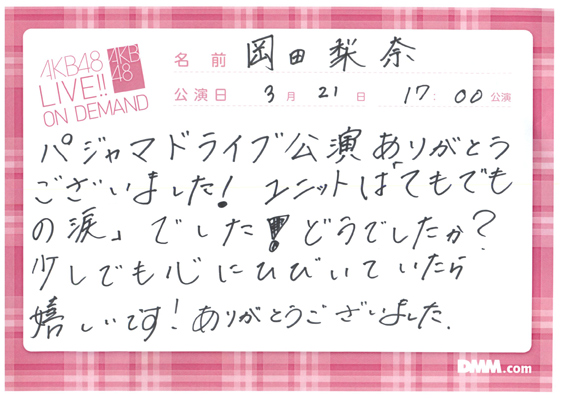 AKB48
LIVE!!
ON DEMAND
AKB
48
名前 岡田梨奈
公演日 3月21日 17:00公演
パジャマドライブ公演ありがとう
ございました! ユニットは「てもでも
の涙」でした!どうでしたか?
少しでも心にひびいていたら
嬉しいです!ありがとうございました.
DMM.com